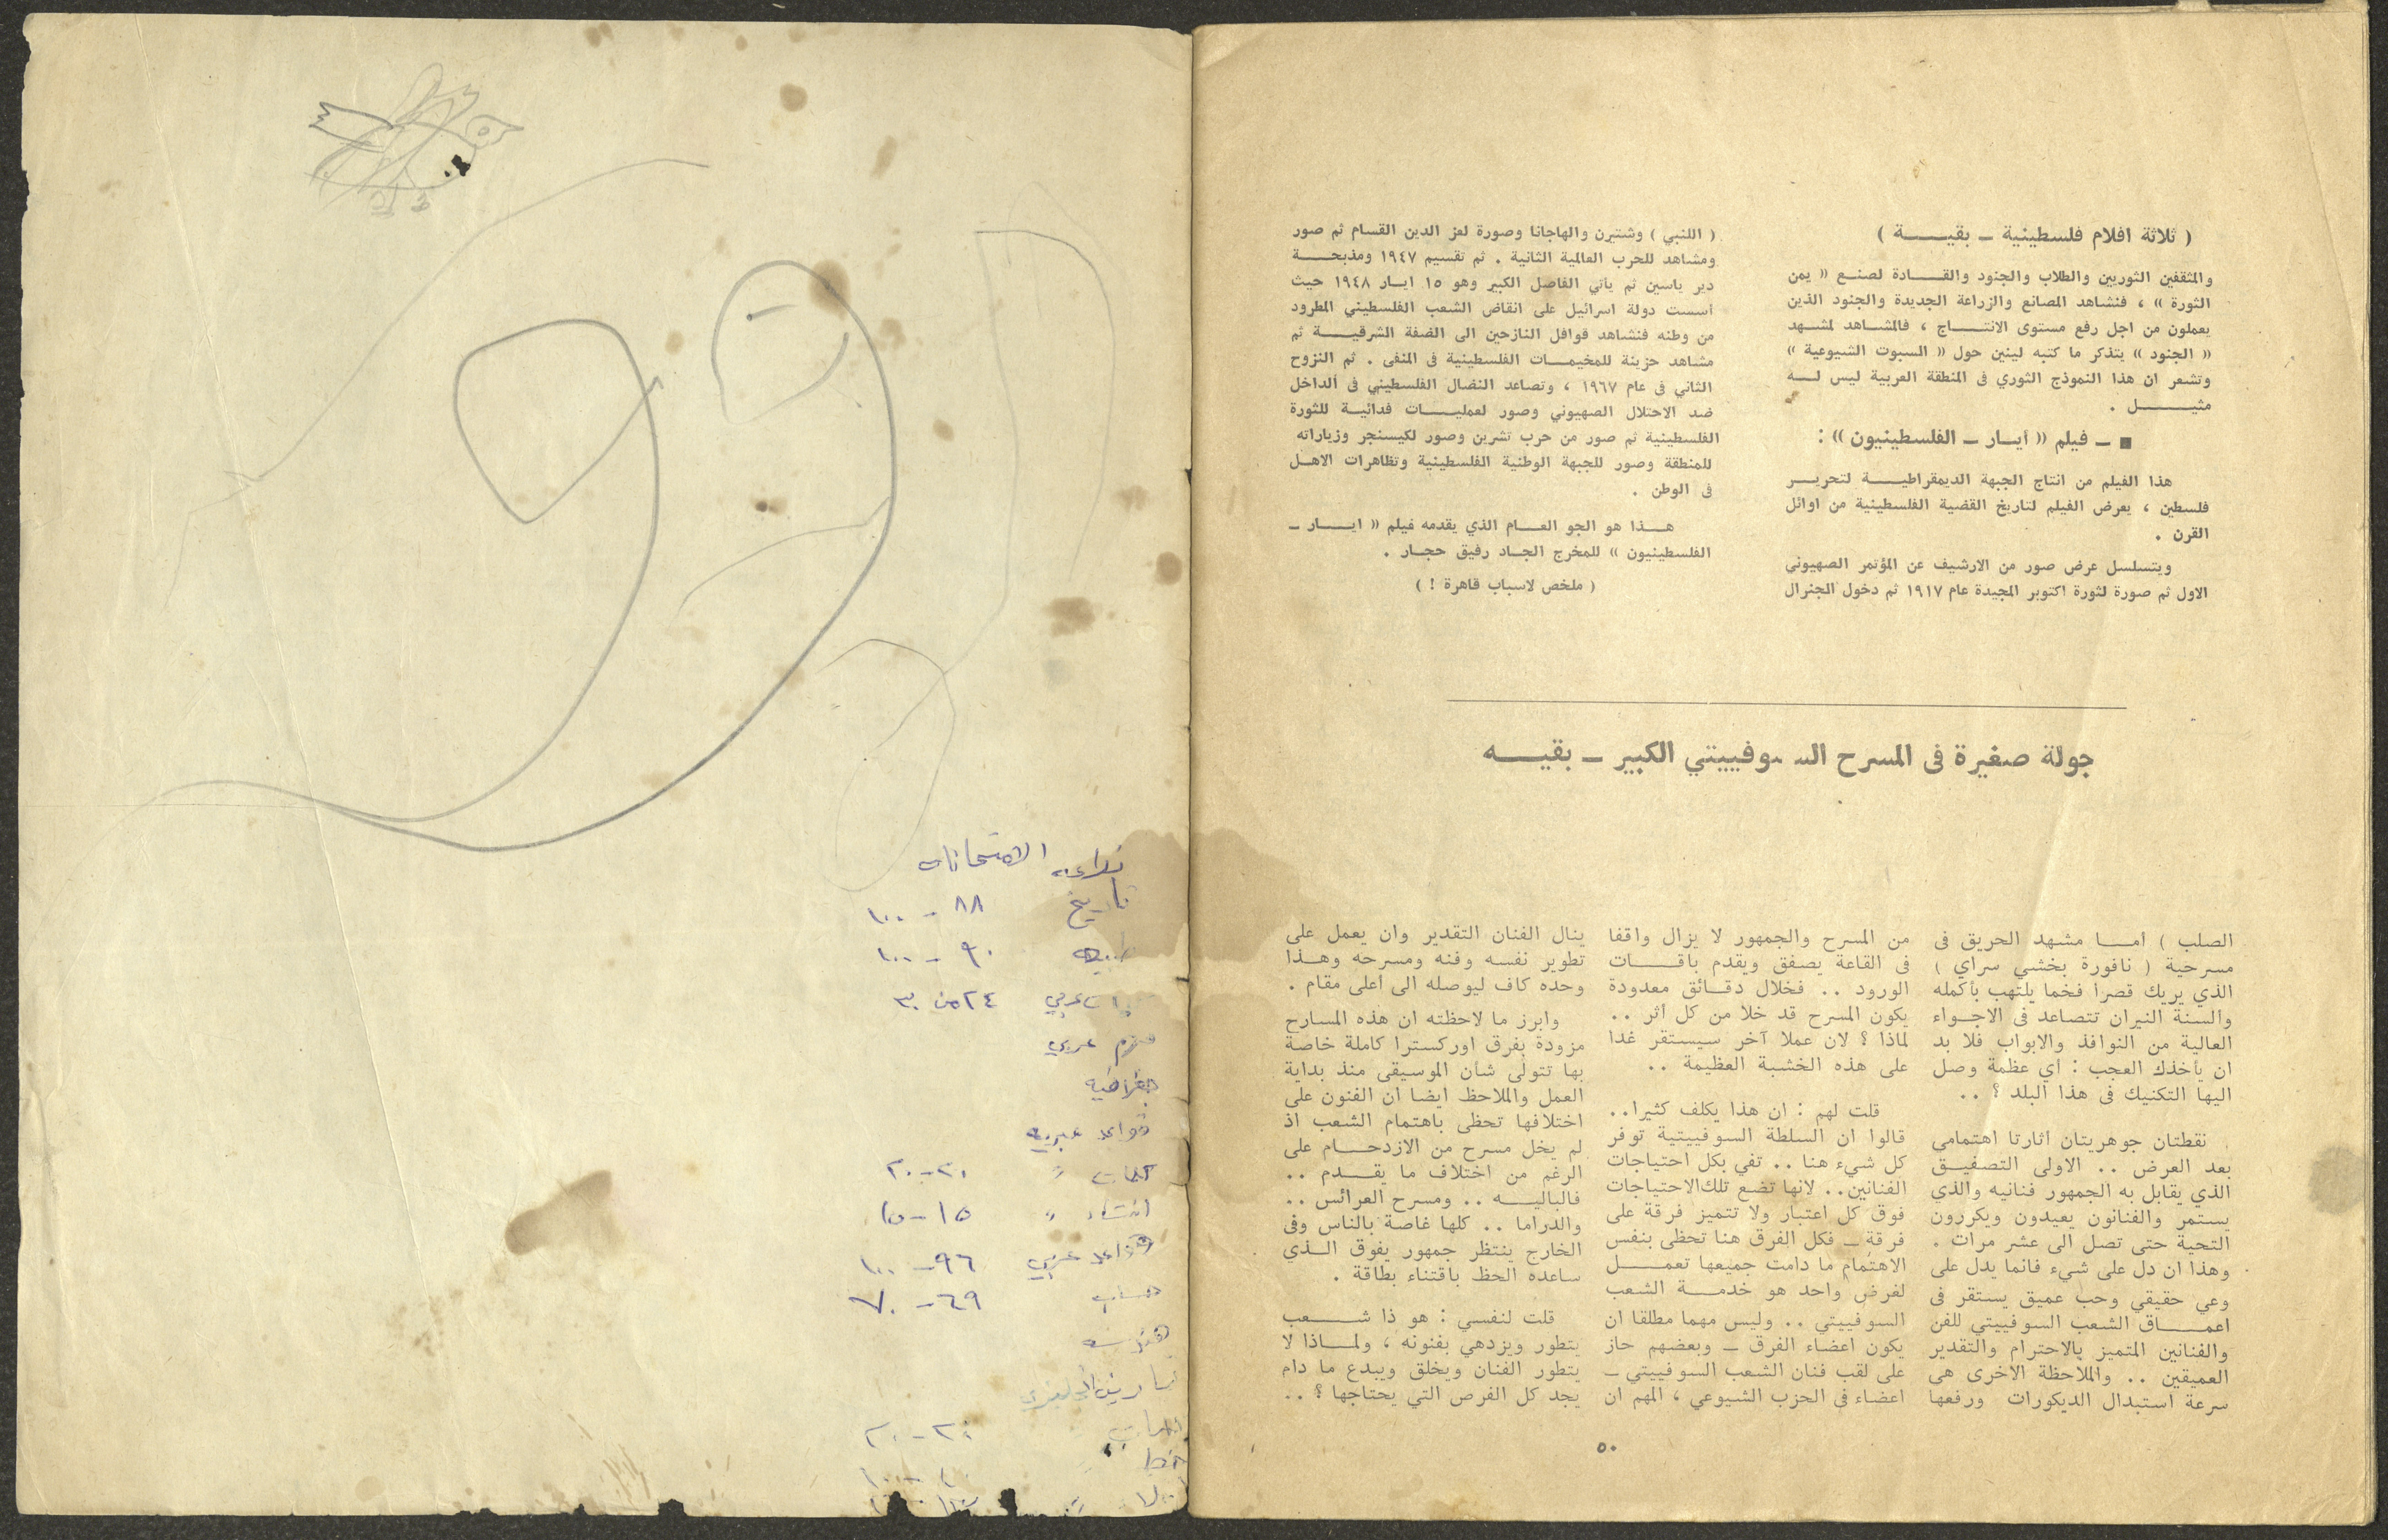 ( ثلاثة افلام فلسطينية ــ بقيــــة )
والمثقفين الثوريين والطلاب والجنود والقــــادة لصنـع « يمن
الثورة » ، فنشاهد المصانع والزراعة الجديدة والجنود الذين
يعملون من اجل رفع مستوى الانتــــاج ، فالمشــاهد لمشــهد
« الجنود » يتذكر ما كتبه لينين حول « السبوت الشيوعية »
وتشعر ان هذا النموذج الثوري فى المنطقة العربية ليس لــه
مثيـــــل .
■ ــ فيلم « أيــار ــ الفلسطينيون » :
هذا الفيلم من انتاج الجبهة الديمقراطيــــة لتحريــر
فلسطين ، يعرض الفيلم لتاريخ القضية الفلسطينية من اوائل
القرن .
ويتسلسل عرض صور من الارشيف عن المؤتمر الصهيوني
الاول ثم صورة لثورة اكتوبر المجيدة عام ١٩١٧ ثم دخول الجنرال
( اللنبي ) وشتيرن والهاجانا وصورة لعز الدين القسام ثم صور
ومشاهد للحرب العالمية الثانية . ثم تقسيم ١٩٤٧ ومذبحـــة
دير ياسين ثم يأتي الفاصل الكبير وهو ١٥ ايــار ١٩٤٨ حيث
أسست دولة اسرائيل على انقاض الشعب الفلسطيني المطرود
من وطنه فنشاهد قوافل النازحين الى الضفة الشرقيـــة ثم
مشاهد حزينة للمخيمــات الفلسطينية فى المنفى . ثم النزوح
الثاني فى عام ١٩٦٧ ، وتصاعد النضال الفلسطيني فى الداخل
ضد الاحتلال الصهيوني وصور لعمليــــات فدائيــة للثورة
الفلسطينية ثم صور من حرب تشرين وصور لكيسنجر وزياراته
للمنطقة وصور للجبهة الوطنية الفلسطينية وتظاهرات الاهــل
فى الوطن .
هــــذا هو الجو العــــام الذي يقدمه فيلم « ايــــار ــ
الفلسطينيون » للمخرج الجـاد رفيق حجـار .
( ملخص لاسباب قاهرة ! )
جولة صغيرة فى المسرح السوفييتي الكبير ــ بقيــــه
الصلب ) أمــــا مشهد الحريق فى
مسرحية ( نافورة بخشي سراي )
الذي يريك قصرا فخما يلتهب بأكمله
والسنة النيران تتصاعد فى الاجــواء
العالية من النوافذ والابواب فلا بد
ان يأخذك العجب : أي عظمة وصل
اليها التكنيك فى هذا البلد ؟ ..
نقطتان جوهريتان اثارتا اهتمامي
بعد العرض .. الاولى التصفيــق
الذي يقابل به الجمهور فنانيه والذي
يستمر والفنانون يعيدون ويكررون
التحية حتى تصل الى عشر مرات .
وهذا ان دل على شيء فانما يدل على
وعي حقيقي وحب عميق يستقر فى
اعمــــاق الشعب السوفييتي للفن
والفنانين المتميز بالاحترام والتقدير
العميقين .. والملاحظة الاخرى هى
سرعة استبدال الديكورات ورفعها
من المسرح والجمهور لا يزال واقفا
فى القاعة يصفق ويقدم باقــــات
الورود .. فخلال دقــائق معدودة
يكون المسرح قد خلا من كل أثر ..
لماذا ؟ لان عملا آخر سيستقر غدا
على هذه الخشبة العظيمة ..
قلت لهم : ان هذا يكلف كثيرا..
قالوا ان السلطة السوفييتية توفر
كل شيء هنا .. تفي بكل احتياجات
الفنانين.. لانها تضع تلك الاحتياجات
فوق كل اعتبار ولا تتميز فرقة على
فرقة ــ فكل الفرق هنا تحظى بنفس
الاهتمام ما دامت جميعها تعمــــل
لغرض واحد هو خدمــــة الشعب
السوفييتي .. وليس مهما مطلقا ان
يكون اعضاء الفرق ــ وبعضهم حاز
على لقب فنان الشعب السوفييتي ــ
اعضاء فى الحزب الشيوعي ، المهم ان
ينال الفنان التقدير وان يعمل على
تطوير نفسه وفنه ومسرحه وهــذا
وحده كاف ليوصله الى أعلى مقام .
وابرز ما لاحظته ان هذه المسارح
مزودة بفرق اوركسترا كاملة خاصة
بها تتولى شأن الموسيقى منذ بداية
العمل والملاحظ ايضا ان الفنون على
اختلافها تحظى باهتمام الشعب اذ
لم يخل مسرح من الازدحــــام على
الرغم من اختلاف ما يقــــدم ..
فالباليــــه .. ومسرح العرائس ..
والدراما .. كلها غاصة بالناس وفى
الخارج ينتظر جمهور يفوق الــذي
ساعده الحظ باقتناء بطاقة .
قلت لنفسي : هو ذا شــــعب
يتطور ويزدهي بفنونه ، ولمــــاذا لا
يتطور الفنان ويخلق ويبدع ما دام
يجد كل الفرص التي يحتاجها ؟ ..
٥٠
الامتحانات
تاريخ ٨٨ - ١٠٠
٩٠ - ١٠٠
عربي ٢٤ من ٣٠
عربي
جغرافيه
قواعد عبريه
كلمات " ٢٠-٢٠
انشاء " ١٥-١٥
قواعد عربي ٩٦-١٠٠
حساب ٦٩-٧٠
هندسه
٢٠-٢٠